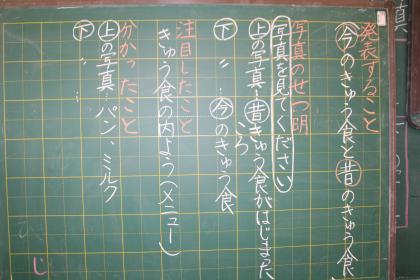 発表すること
今のきゅう食と昔のきゅう食
写真のせつ明
写真を見てください
上の写真…昔きゅう食がはじまったころ
下 〃 … 今のきゅう食
注目したこと
きゅう食の内よう(メニュー)
分かったこと
上の写真…パン、ミルク
下 〃 …
じ